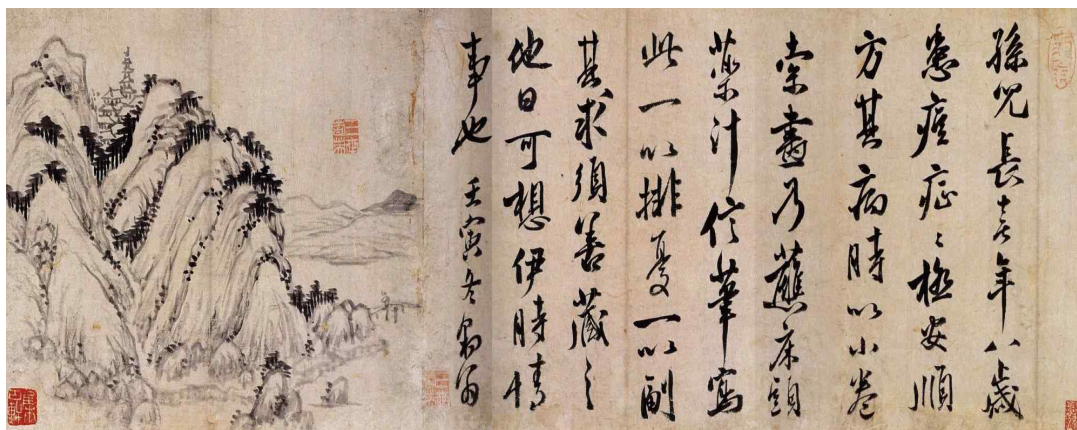 孫兒長吉年八歲
患痘症〻極安順
方其病時以小卷
索畫乃蘸床頭
藥汁信筆寫
此一以排憂一以副
其求須善藏之
他日可想伊時情
事也 壬寅冬